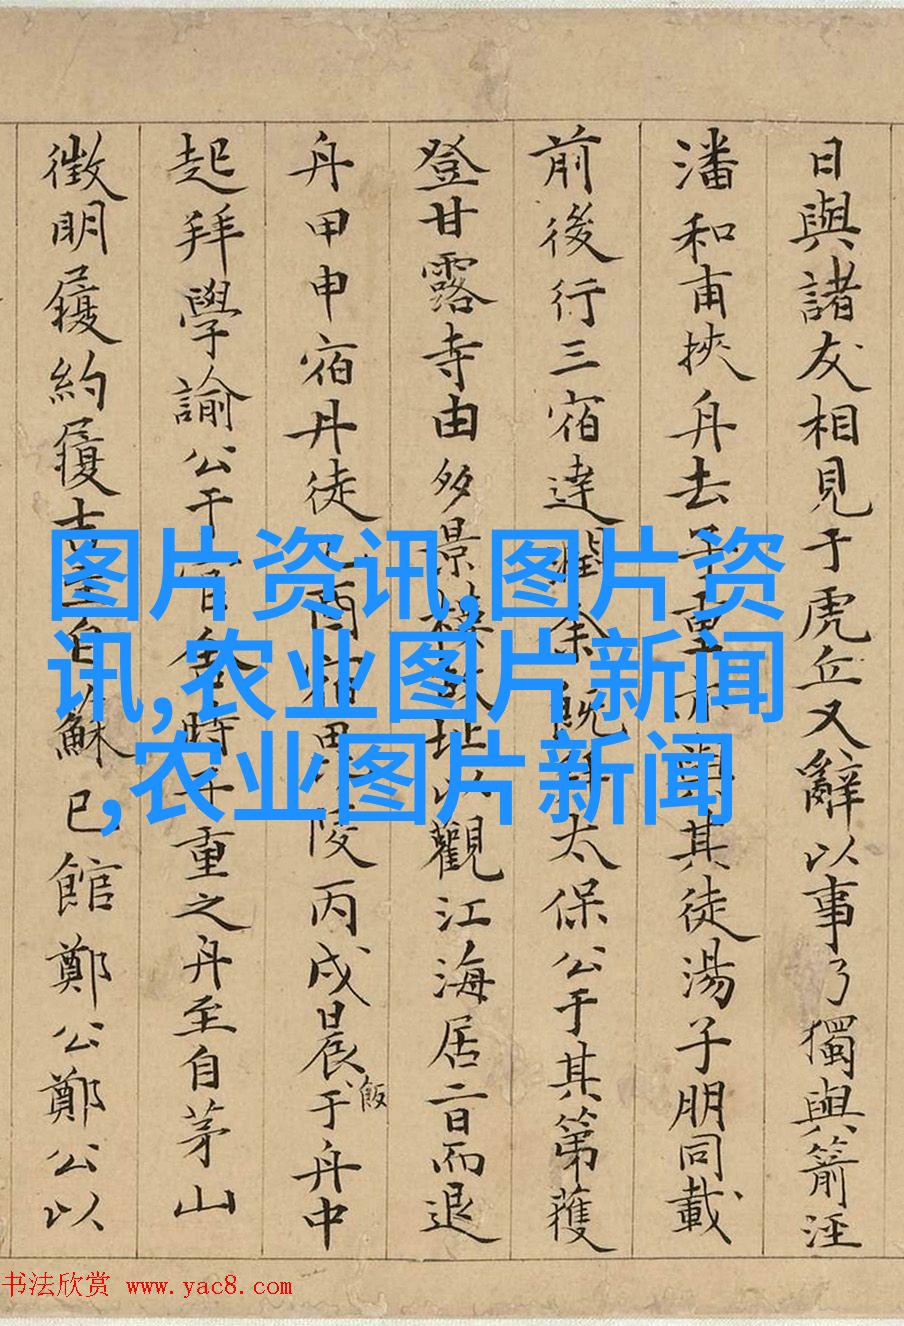 日與諸友相見于虎丘又辭以事乃獨與箭涇
潘和甫挾舟去子重亦與其徒湯子朋同載
前後行三宿達潤余既拜太保公于其第獲
登甘露寺由多景樓故址以觀江海居二日而退
舟甲申宿丹徒乙酉宿毘陵丙戌晨飯于舟中
起拜學諭公于官舍時子重之舟至自茅山
徵明履約履吉至自蘇已館鄭公鄭公以
图片资讯,图片资
讯,农业图片新闻
,农业图片新闻
书法欣赏 www.yac8.com